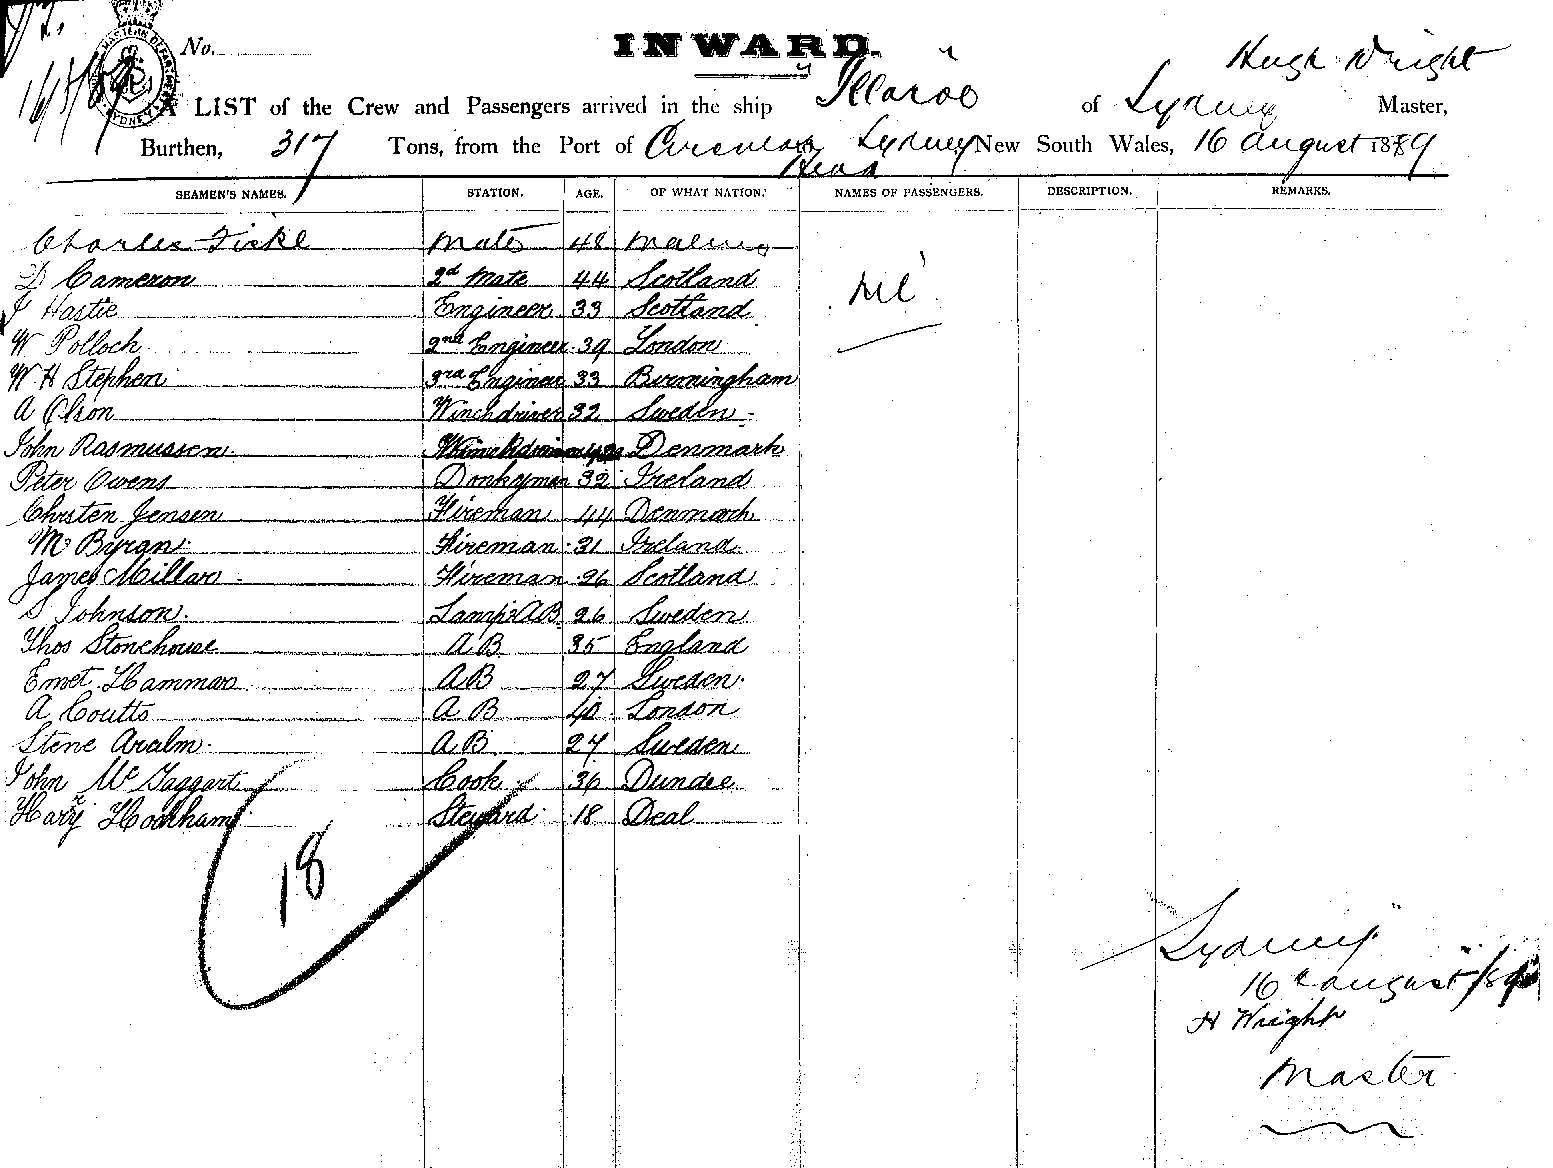 No.
INWARD.
Hugh Wright
16/8/89
A LIST of the Crew and Passengers arrived in the ship of Sydney Master,
Burthen, 317 Tons, from the Port of Circular Head Sydney New South Wales, 16 August 1889
SEAMEN'S NAMES. STATION. AGE. OF WHAT NATION. NAMES OF PASSENGERS. DESCRIPTION. REMARKS.
Charles Mate 48
D Cameron 2nd Mate 44 Scotland Nil
J Hastie Engineer 33 Scotland
W Polloch 2nd Engineer 39 London
W H Stephen 3rd Engineer 33 Birmingham
A Olson Winchdriver 32 Sweden
John Rasmussen Denmark
Peter Owens Donkeyman 32 Ireland
Christen Jensen Fireman 44 Denmark
M Byrgn Fireman 31 Ireland
James Millar Fireman 26 Scotland
S Johnson Lamps AB 26 Sweden
Thos Stonehouse A B 35 England
Hammar AB 27 Sweden
A Coutts A B 40 London
Stene A B 27 Sweden
John McTaggart Cook 36 Dundee
Harry Hookham Steward 18 Deal
18
Sydney
16 August /89
H Wright
Master